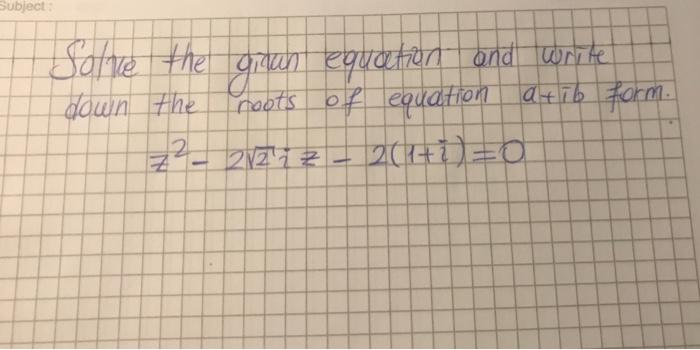 Subject:
Solve the given equation and write
down the roots of equation a+ib form.
z² - 2√2 i z - 2(1+i) = 0